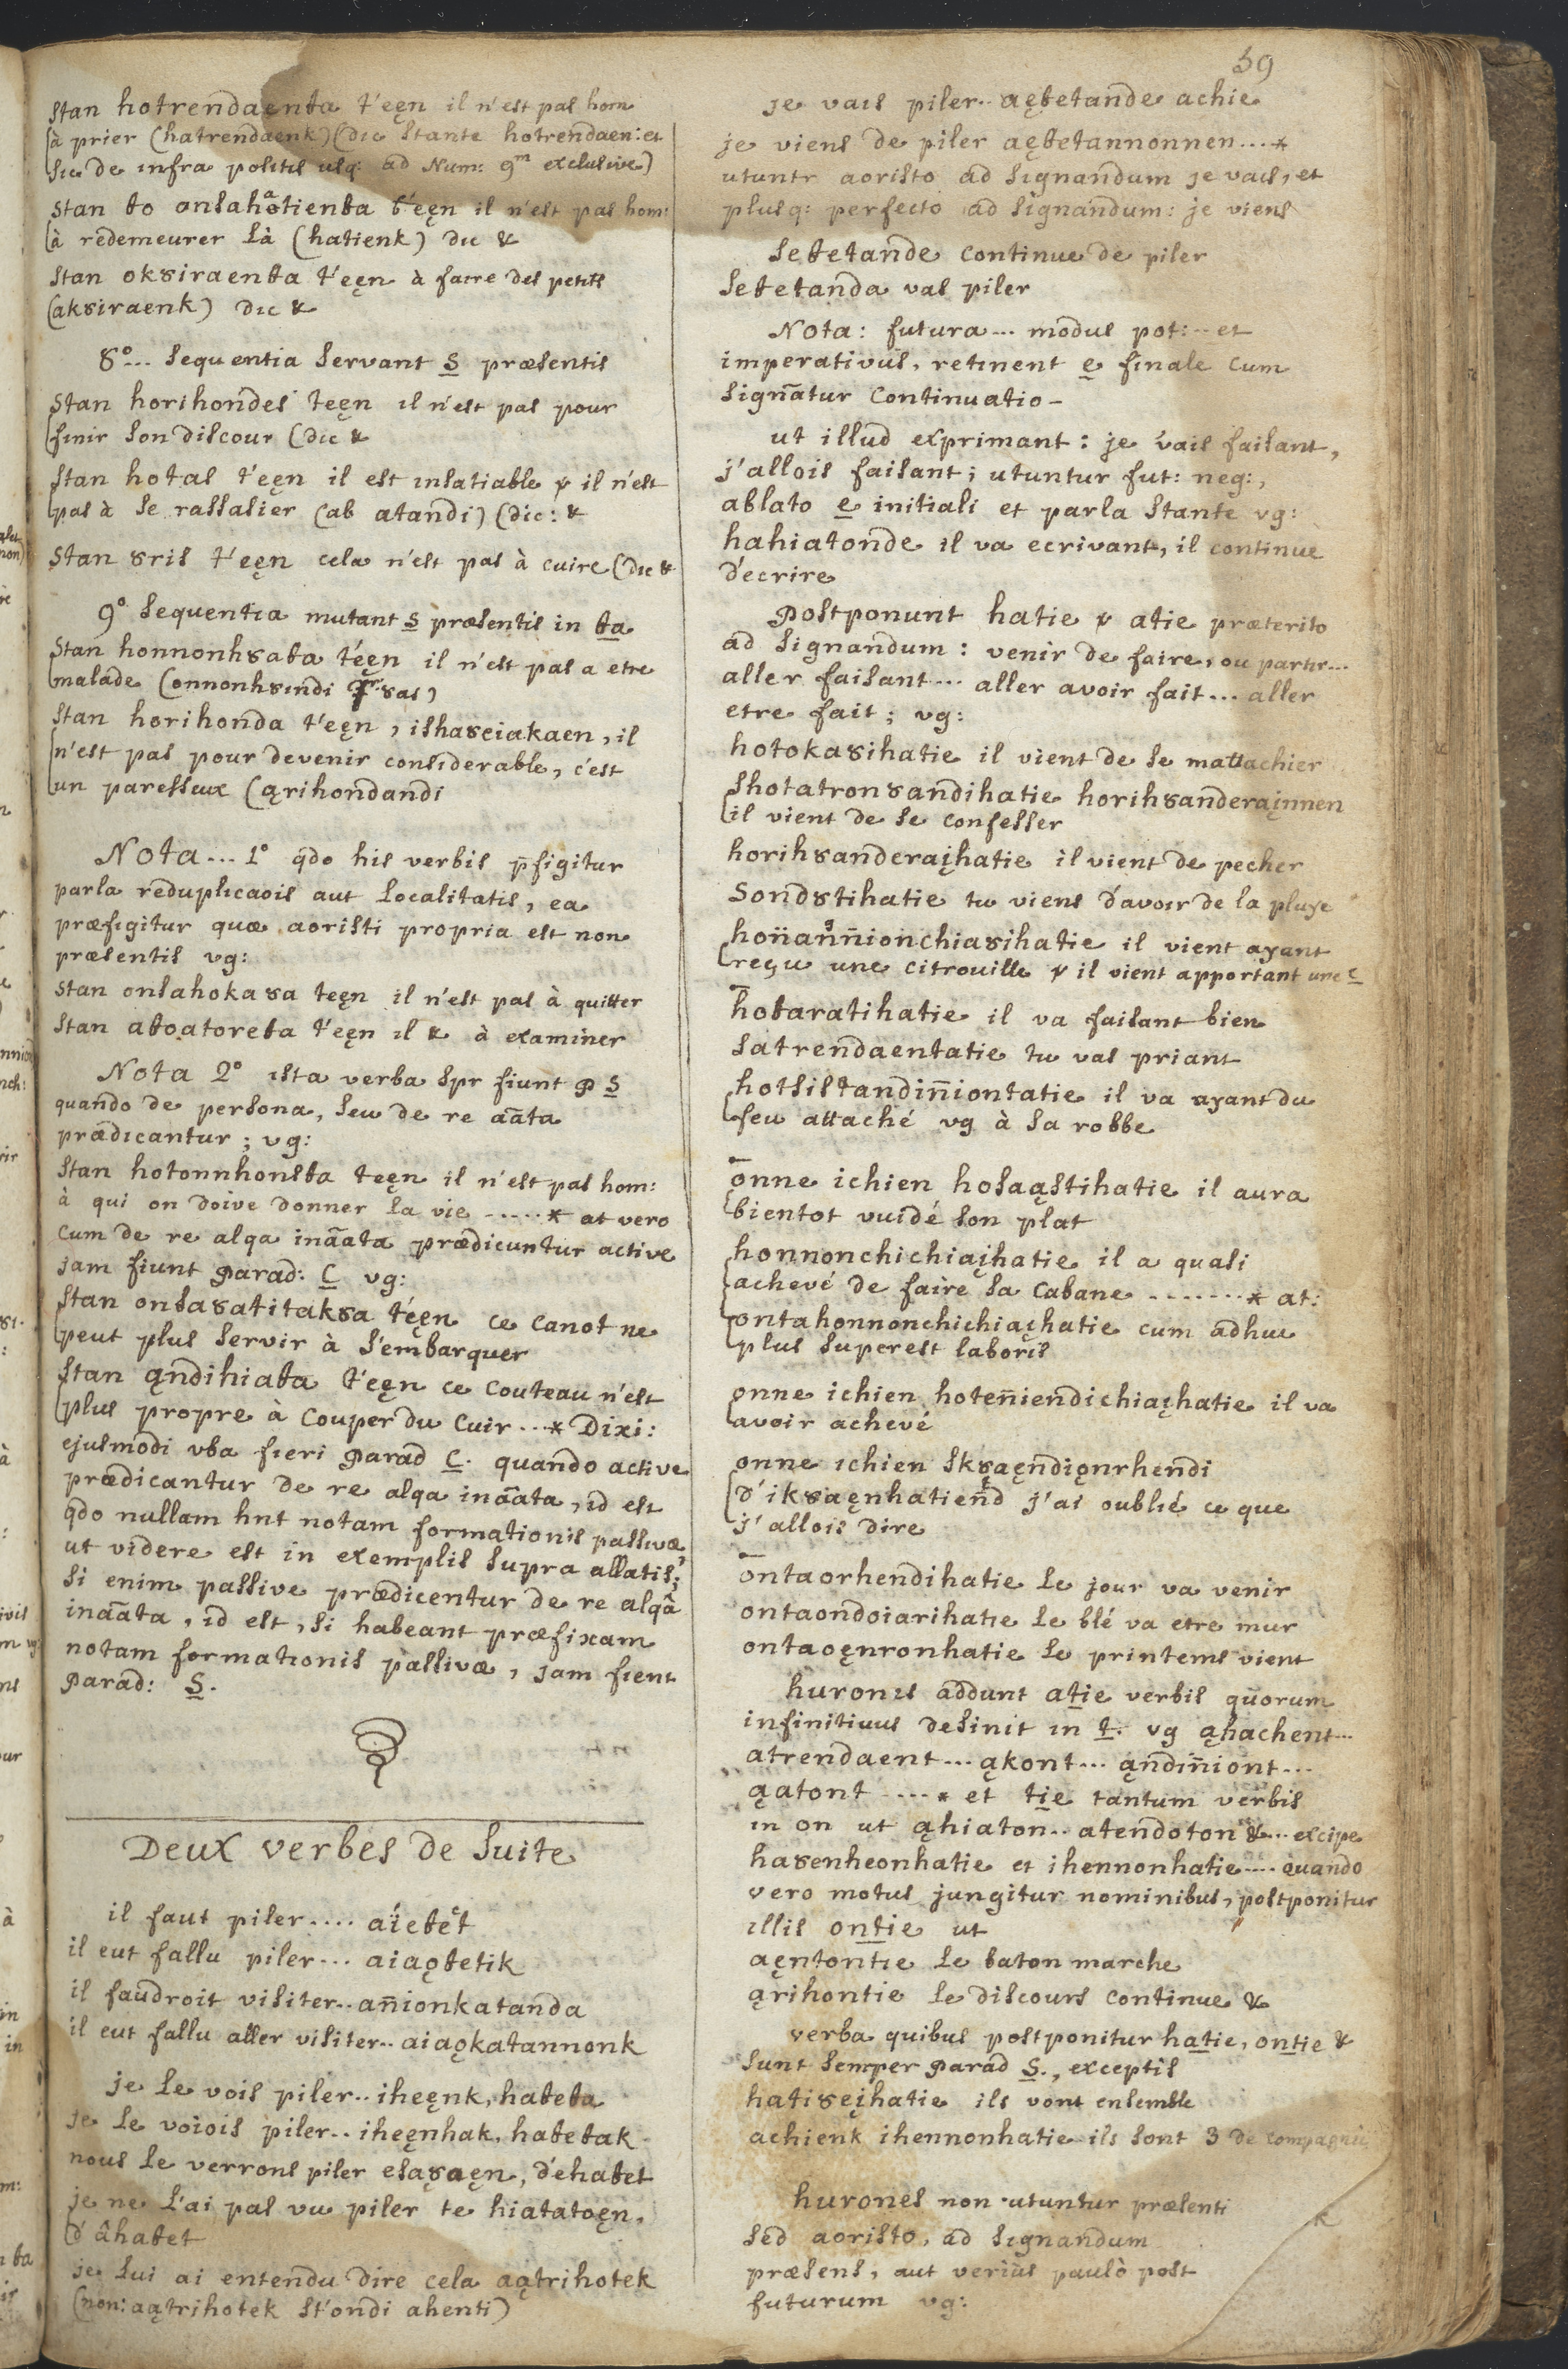 59
stan hotrendaenta t'ęęn il n'est pas hom
à prier (hatrendaenk) (dic stante hotrendaen: et
sic de infra positis usq: ad Num: 9m exclusive)
stan to onsahatienta t'ęęn il n'est pas hom:
à redemeurer là (hatienk) dic &
stan okȣiraenta t'ęęn à faire des petits
(akȣiraenk) dic &
8°... sequentia servant s præsentis
stan horihondes tęęn il n'est pas pour
finir son discour (dic &
stan hotas t'ęęn il est insatiable v il n'est
pas à se rassasier (ab atandi) (dic: &
stan ȣris t'ęęn cela n'est pas à cuire (dic &
9° sequentia mutant s præsentis in ta
stan honnonhȣata t'ęęn il n'est pas a etre
malade (onnonhȣindi ȣas)
stan horihonda t'ęęn, ishaȣeiakaen, il
n'est pas pour devenir considerable, c'est
un paresseux (ąrihondandi
Nota... 1° qdo his verbis p̄figitur
parla reduplicaois aut localitatis, ea
præfigitur quæ aoristi propria est non
præsentis vg:
stan onsahokaȣa tęęn il n'est pas à quitter
stan atoatoreta t'ęęn il & à examiner
Nota 2° ista verba spr fiunt P S
quando de persona, seu de re aāta
prædicantur; vg:
stan hotonnhonsta tęęn il n'est pas hom:
à qui on doive donner la vie .....* at vero
cum de re alqa ināata prædicuntur active
jam fiunt Parad: C vg:
stan onsaȣatitakȣa t'ęęn ce canot ne
peut plus servir à s'embarquer
stan ąndihiata t'ęęn ce couteau n'est
plus propre à couper du cuir...* Dixi:
ejusmodi vba fieri Parad C. quando active
prædicantur de re alqa ināata, id est
qdo nullam hnt notam formationis passivæ
ut videre est in exemplis supra allatis;
si enim passive prædicentur de re alqâ
ināata, id est, si habeant præfixam
notam formationis passivæ, jam fient
Parad: S.
Deux verbes de suite
il faut piler.... aïetet
il eut fallu piler... aiaǫtetik
il faudroit visiter.. añionkatanda
il eut fallu aller visiter.. aiaǫkatannonk
je le vois piler.. iheęnk, hateta
je le voiois piler.. iheęnhak, hatetak
nous le verrons piler esaȣaęn, d'ehatet
je ne l'ai pas vu piler te hiatatoęn,
d'âhatet
je lui ai entendu dire cela aątrihotek
(non: aątrihotek st'ondi ahenti)
je vais piler.. aętetande achie
je viens de piler aętetannonnen....*
utuntr aoristo ad signandum je vais, et
plusq: perfecto ad signandum: je viens
setetande continue de piler
setetanda vas piler
Nota: futura... modus pot:.. et
imperativus, retinent e finale cum
signātur continuatio-
ut illud exprimant: je vais faisant,
j'allois faisant; utuntur fut: neg:,
ablato e initiali et parla stante vg:
hahiatonde il va ecrivant, il continue
d'ecrire
Postponunt hatie v atie præterito
ad signandum: venir de faire, ou partir...
aller faisant... aller avoir fait... aller
etre fait; vg:
hotokaȣihatie il vient de se mattachier
shotatronȣandihatie horihȣanderaįnnen
il vient de se confesser
horihȣanderaįhatie il vient de pecher
sondȣtihatie tu viens d'avoir de la pluye
hoñanñionchiaȣihatie il vient ayant
reçu une citrouille v il vient apportant une c
hotaratihatie il va faisant bien
satrendaentatie tu vas priant
hotsistandiñiontatie il va ayant du
feu attaché vg à sa robbe
onne ichien hosaąstihatie il aura
bientot vuidé son plat
honnonchichiaįhatie il a quasi
achevé de faire sa cabane .......* at:
ontahonnonchichiaįhatie cum adhuc
plus superest laboris
onne ichien hoteñiendichiaįhatie il va
avoir achevé
onne ichien skȣaęndiǫnrhendi
d'ikȣaęnhatiend j'ai oublié ce que
j'allois dire
ontaorhendihatie le jour va venir
ontaondoiarihatie le blé va etre mur
ontaoęnronhatie le printems vient
hurones addunt atie verbis quorum
infinitivus desinit in t. vg ąhachent...
atrendaent... ąkont... ąndiñiont...
ąatont ....* et tie tantum verbis
in on ut ąhiaton.. atendoton &... excipe
haȣenheonhatie et ihennonhatie.... quando
vero motus jungitur nominibus, postponitur
illis ontie ut
aęntontie le baton marche
ąrihontie le discours continue &
verba quibus postponitur hatie, ontie &
sunt semper Parad S., exceptis
hatiȣeįhatie ils vont ensemble
achienk ihennonhatie ils sont 3 de compagnie
hurones non utuntur præsenti
sed aoristo, ad signandum
præsens, aut veriùs paulò post
futurum vg: